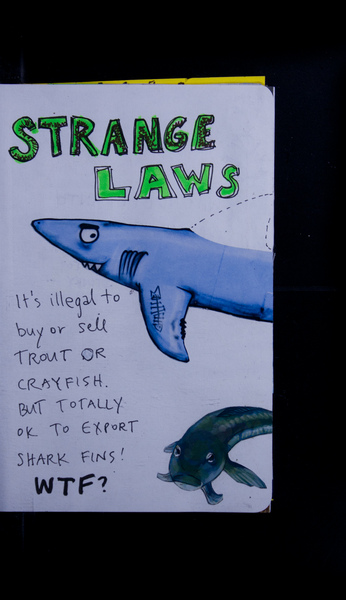 STRANGE
LAWS
It's illegal to
buy or sell
TROUT OR
CRAYFISH.
BUT TOTALLY
OK TO EXPORT
SHARK FINS!
WTF?